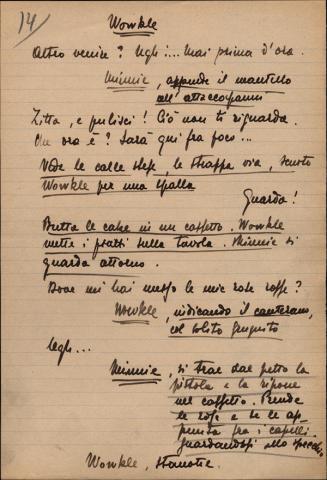 14
Wowkle
Altro venire? Ugh!... Mai prima d'ora.
Minnie, appende il mantello
all'attaccapanni
Zitta, e pulisci! Ciò non ti riguarda.
Che ora è? Sarà qui fra poco...
Vede le calze stese, le strappa via, scuote
Wowkle per una spalla
Guarda!
Butta le calze in un cassetto. Wowkle
mette i piatti sulla tavola. Minnie si
guarda attorno.
Dove mi hai messo le mie rose rosse?
Wowkle, indicando il canterano,
col solito grugnito
Ugh...
Minnie, si trae dal petto la
pistola e la ripone
nel cassetto. Prende
le rose e se le ap-
punta fra i capelli
guardandosi allo specchio
Wowkle, stanotte.